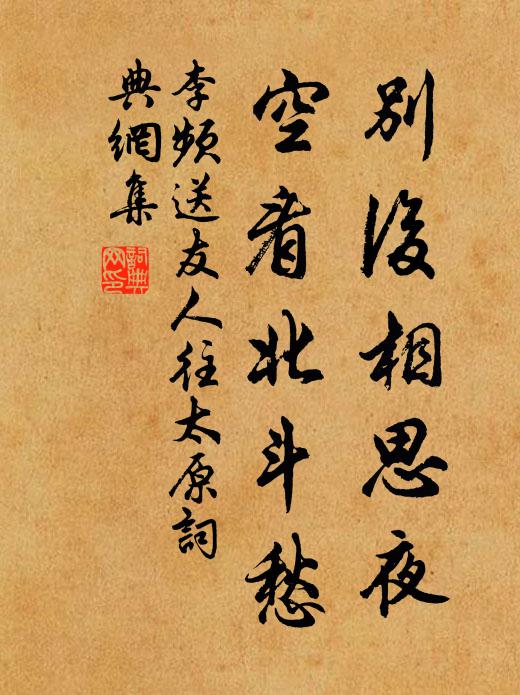 別後相思夜
空看北斗愁
李頻送友人往太原詞
典網集
詞典
网印